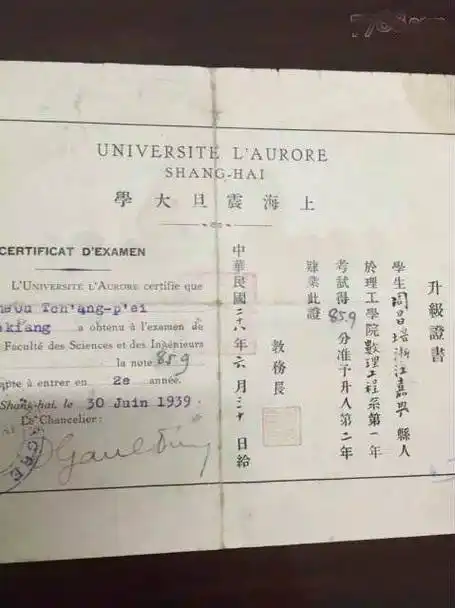 UNIVERSITÉ L'AURORE
SHANG-HAI
上海震旦大學
CERTIFICAT D'EXAMEN
L'UNIVERSITÉ L'AURORE certifie que
Tch'ang-p'ei
kiang a obtenu à l'examen de
Faculté des Sciences et des Ingénieurs
la note 85.9
apte à entrer en 2e année.
Shang-hai, le 30 Juin 1939.
Le Chancelier:
升級證書
學生周昌培浙江嘉興縣人
於理工學院數理工程系第一年
考試得85.9分准予升入第二年
肄業此證
教務長
中華民國二十八年六月三十日給